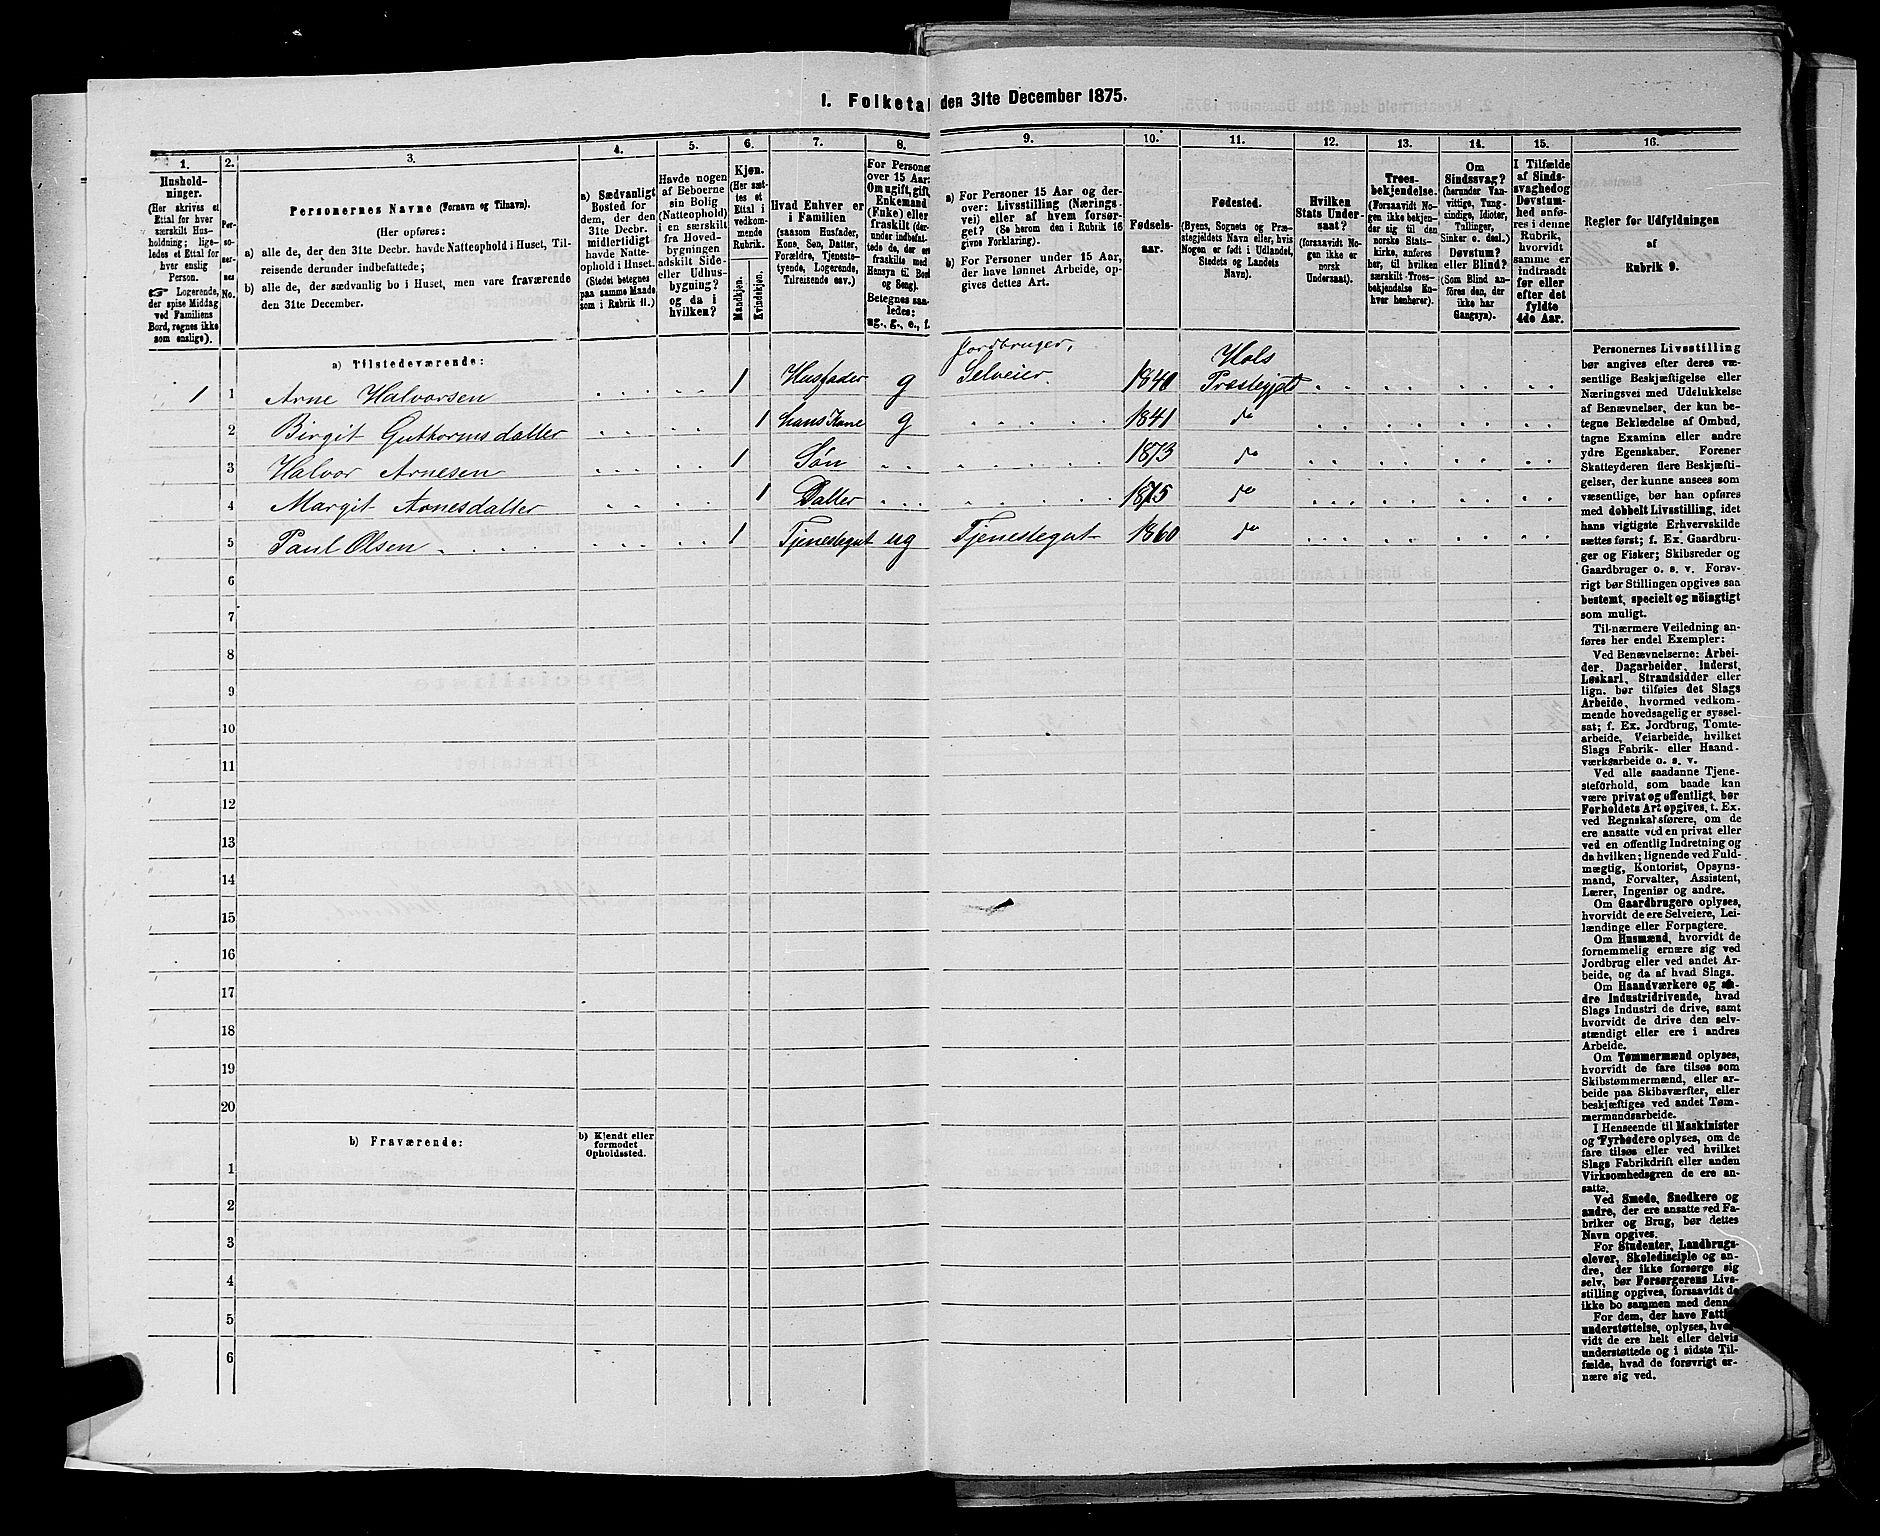 1. Folketal den 31te December 1875.
1.
2.
3.
4.
5.
6.
7.
8.
9.
10.
11.
12.
13.
14.
15.
16.
Hushold-
ninger.
(Her skrives et
Ettal for hver
særskilt Hus-
holdning; lige-
ledes et Ettal for
hver enslig
Person.
☞ Logerende,
der spise Middag
ved Familiens
Bord, regnes ikke
som enslige).
Per-
so-
ner-
nes
No.
Personernes Navne (Fornavn og Tilnavn).
(Her opføres:
a) alle de, der den 31te Decbr. havde Natteophold i Huset, Til-
reisende derunder indbefattede;
b) alle de, der sædvanlig bo i Huset, men vare fraværende
den 31te December.
a) Sædvanligt
Bosted for
dem, der den
31te Decbr.
midlertidigt
havde Natte-
ophold i Huset.
(Stedet betegnes
paa samme Maade
som i Rubrik 11.)
Havde nogen
af Beboerne
sin Bolig
(Natteophold)
i en særskilt
fra Hoved-
bygningen
adskilt Side-
eller Udhus-
bygning?
og da i
hvilken?
Kjøn.
(Her sæt-
tes et
Ettal i
vedkom-
mende
Rubrik.
Mandkjøn.
Kvindekjøn.
Hvad Enhver er
i Familien
(saasom Husfader,
Kone, Søn, Datter,
Forældre, Tjeneste-
tyende, Logerende,
Tilreisende osv.)
For Personer
over 15 Aar:
Om ugift, gift,
Enkemand
(Enke) eller
fraskilt (der-
under indbefat-
tede de, der ere
fraskilte med
Hensyn til Bord
og Seng).
Betegnes saa-
ledes:
ug., g., e., f.
a) For Personer 15 Aar og der-
over: Livsstilling (Nærings-
vei) eller af hvem forsør-
get? (Se herom den i Rubrik 16
givne Forklaring).
b) For Personer under 15 Aar,
der have lønnet Arbeide, op-
gives dettes Art.
Fødsels-
aar.
Fødested.
(Byens, Sognets og Præ-
stegjeldets Navn eller, hvis
Nogen er født i Udlandet,
Stedets og Landets
Navn).
Hvilken
Stats Under-
saat?
(forsaavidt No-
gen ikke er
norsk
Undersaat).
Troes-
bekjendelse.
(Forsaavidt No-
gen ikke bekjen-
der sig til den
norske Stats-
kirke, anføres
her, til hvilken
særskilt Troes-
bekjendelse En-
hver henhører).
Om
Sindssvag?
(herunder Van-
vittige, Tung-
sindige, Idioter,
Tallinger,
Sinker o. desl.)
Døvstum?
eller Blind?
(Som Blind an-
føres den, der
ikke har
Gangsyn).
I Tilfælde
af Sinds-
svaghed og
Døvstum-
hed anfø-
res i denne
Rubrik,
hvorvidt
samme er
indtraadt
før eller
efter det
fyldte
4de Aar.
Regler for Udfyldningen
af
Rubrik 9.
a) Tilstedeværende:
1 1 Arne Halvorsen 1 Husfader g Jordbruger, Selveier. 1840 Hols Præstegjeld
2 Birgit Guttormsdatter 1 hans Kone g 1841 do
3 Halvor Arnesen 1 Søn 1873 do
4 Margit Arnesdatter 1 Datter 1875 do
5 Paul Olsen 1 Tjenestegut ug Tjenestegut 1860 do
6
7
8
9
10
11
12
13
14
15
16
17
18
19
20
b) Fraværende:
b) Kjendt eller
formodet
Opholdssted.
1
2
3
4
5
6
Personernes Livsstilling
bør angives efter deres væ-
sentlige Beskjæftigelse eller
Næringsvei med Udelukkelse
af Benævnelser, der kun be-
tegne Beklædelse af Ombud,
tagne Examina eller andre
ydre Egenskaber. Forener
Skatteyderen flere Beskjæfti-
gelser, der kunne ansees som
væsentlige, bør han opføres
med dobbelt Livsstilling, idet
hans vigtigste Erhvervskilde
sættes først; f. Ex. Gaardbru-
ger og Fisker; Skibsreder og
Gaardbruger o. s. v. Forøv-
rigt bør Stillingen opgives saa
bestemt, specielt og nöiagtigt
som muligt.
Til nærmere Veiledning an-
føres her endel Exempler:
Ved Benævnelserne: Arbei-
der, Dagarbeider, Inderst,
Løskarl, Strandsidder eller
lign. bør tilføies det Slags
Arbeide, hvormed vedkom-
mende hovedsagelig er syssel-
sat; f. Ex. Jordbrug, Tomte-
arbeide, Veiarbeide, hvilket
Slags Fabrik- eller Haand-
værksarbeide o. s. v.
Ved alle saadanne Tjene-
steforhold, som baade kan
være privat og offentligt, bør
Forholdets Art opgives, t. Ex.
ved Regnskabsførere, om de
ere ansatte ved en privat eller
ved en offentlig Indretning og
da hvilken; lignende ved Fuld-
mægtig, Kontorist, Opsyns-
mand, Forvalter, Assistent,
Lærer, Ingeniør og andre.
Om Gaardbrugere oplyses,
hvorvidt de ere Selveiere, Lei-
lændinge eller Forpagtere.
Om Husmænd, hvorvidt de
fornemmelig ernære sig ved
Jordbrug eller ved andet Ar-
beide, og da af hvad Slags.
Om Haandværkere og an-
dre Industridrivende, hvad
Slags Industri de drive, samt
hvorvidt de drive den selv-
stændigt eller ere i andres
Arbeide.
Om Tømmermænd oplyses,
hvorvidt de fare tilsøs som
Skibstømmermænd, eller ar-
beide paa Skibsværfter, eller
beskjæftiges ved andet Tøm-
mermandsarbeide.
I Henseende til Maskinister
og Fyrbødere oplyses, om de
fare tilsøs eller ved hvilket
Slags Fabrikdrift eller anden
Virksomhedsgren de ere an-
satte.
Ved Smede, Snedkere og
andre, der ere ansatte ved Fa-
briker og Brug, bør dettes
Navn opgives.
For Studenter, Landbrugs-
elever, Skoledisciple og an-
dre, der ikke forsørge sig
selv, bør Forsørgerens Livs-
stilling opgives, forsaavidt de
ikke bo sammen med denne.
For dem, der have Fattig-
understøttelse, oplyses, hvor-
vidt de ere helt eller delvis
understøttede og i sidste Til-
fælde, hvad de forøvrigt er-
nære sig ved.